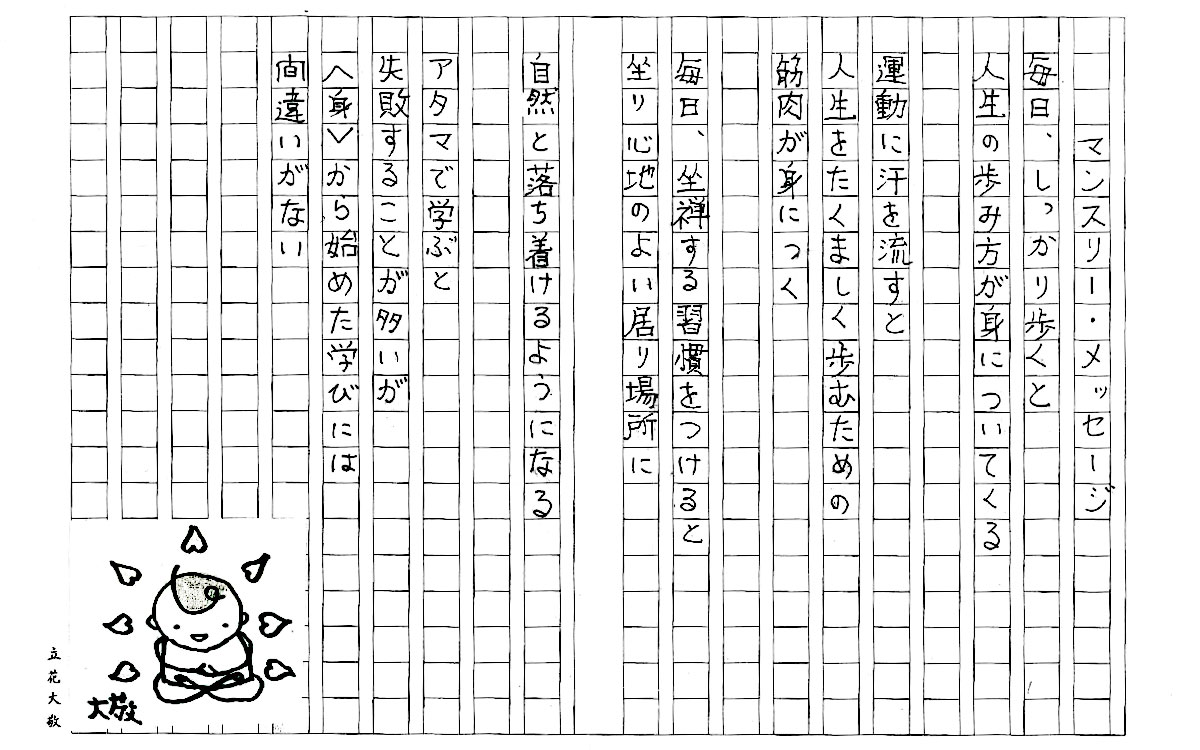 マンスリー・メッセージ
毎日、しっかり歩くと
人生の歩み方が身についてくる
運動に汗を流すと
人生をたくましく歩むための
筋肉が身につく
毎日、坐禅する習慣をつけると
坐り心地のよい居り場所に
自然と落ち着けるようになる
アタマで学ぶと
失敗することが多いが
〈身〉から始めた学びには
間違いがない
大敬
立花大敬